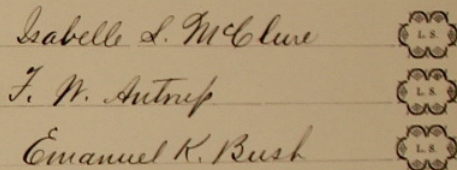 Isabelle S. McClure L. S.
F. W. Antrup L. S.
Emanuel K. Bush L. S.